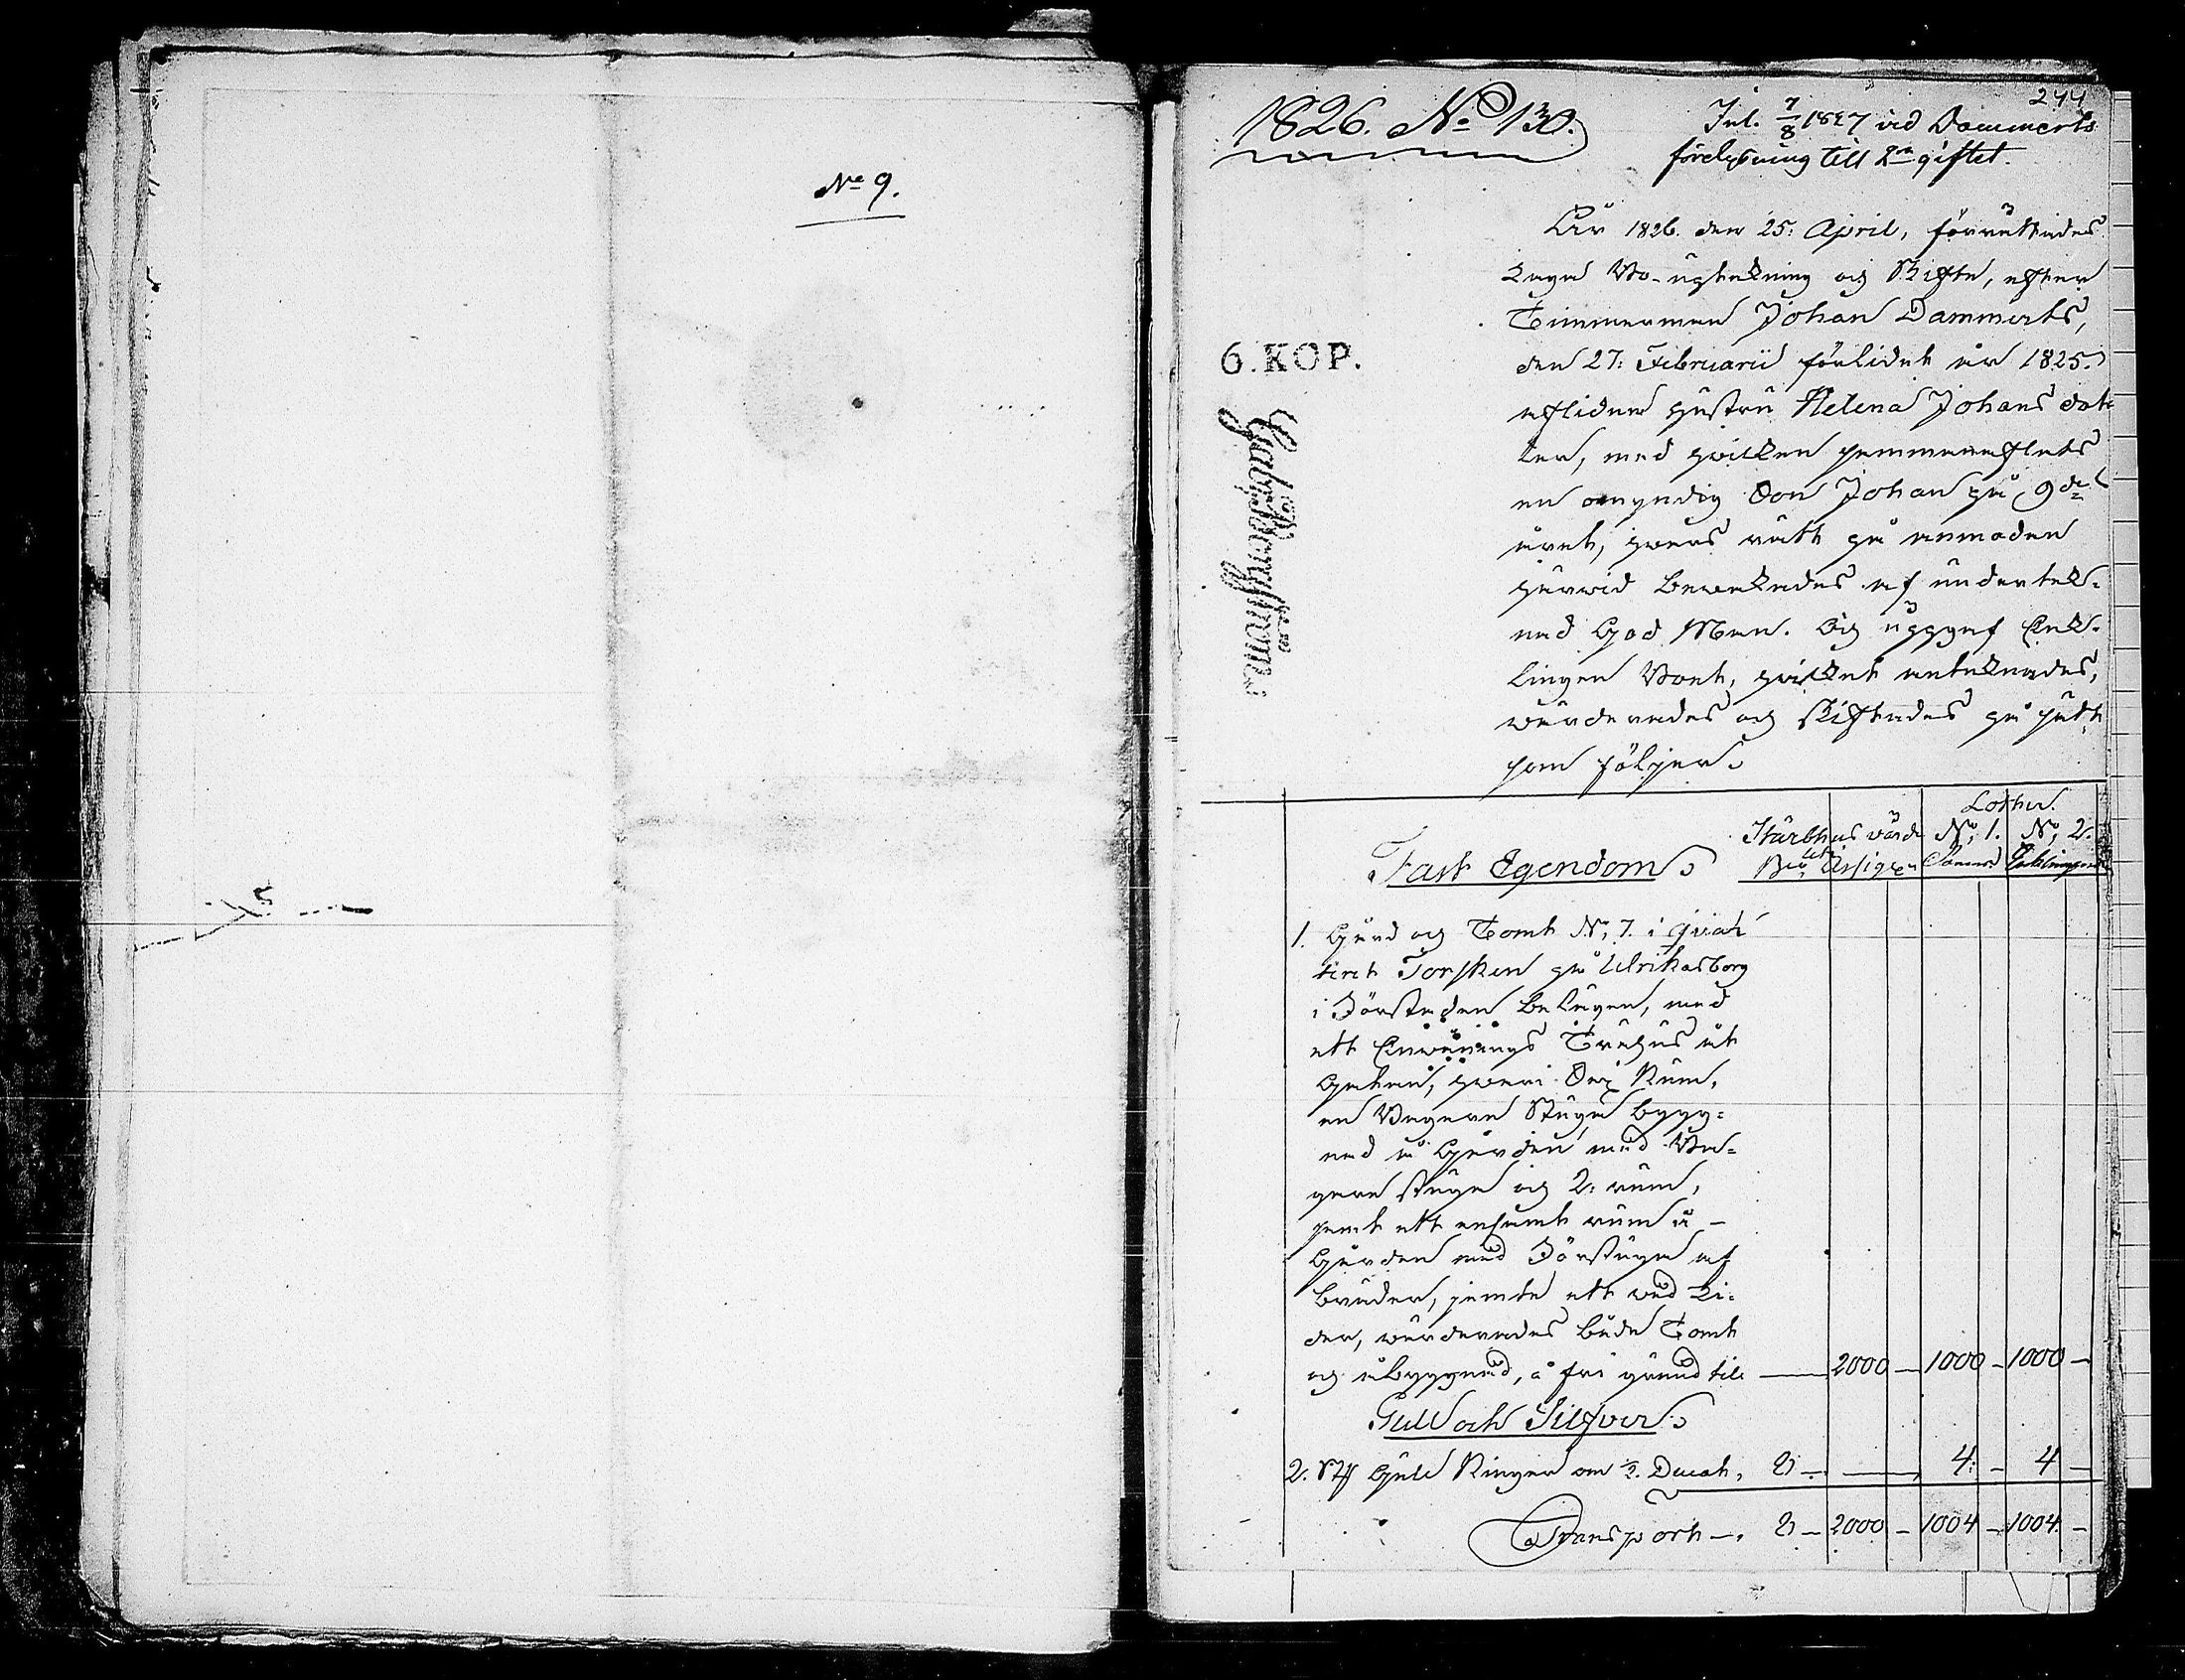 No 9.
244
1826. No 130.
Inl. 7/8 1827 vid Dammerts
förelysning till 2ra giftet.
År 1826. den 25: April, förrättades
Laga Bo-upteckning och Skifte, efter
Timmerman Johan Dammerts,
den 27: Februarii förlidet år 1825.
aflidna hustru Helena Johans dot
ter, med hvilken sammanaflats
en omyndig Son Johan på 9de
året, hvars rätt på anmodan
härvid bevakades af underteck-
nad God Man. Och uppgaf Enk-
lingen Boet, hvilket antecknades,
värderades och skiftades på sätt
som följer.
6. KOP.
Lotter.
Stärbhus värde No, 1. No, 2.
Fast Egendom
Sonens Enklingens
1. Gård och Tomt No, 7. i qvar
teret Torsken på Ulrikasborg
i Förstaden belägen, med
ett Envånings Trähus åt
Gatan, hvari Sex Rum,
en Bagare Stuga bygg-
nad å Gården med Ba-
gare stuga och 2: rum,
samt ett ensamt rum å -
Gården med Förstuga af
bräder, jemte ett ved Li-
der, värderades både Tomt
och åbyggnad, å fri grund till — 2000 — 1000 — 1000 —
Gull och Silfver
2. St Guld Ringar om 1/2. Ducat, 8 — 4: — 4 —
Transport —. 8 — 2000 — 1004 — 1004. —